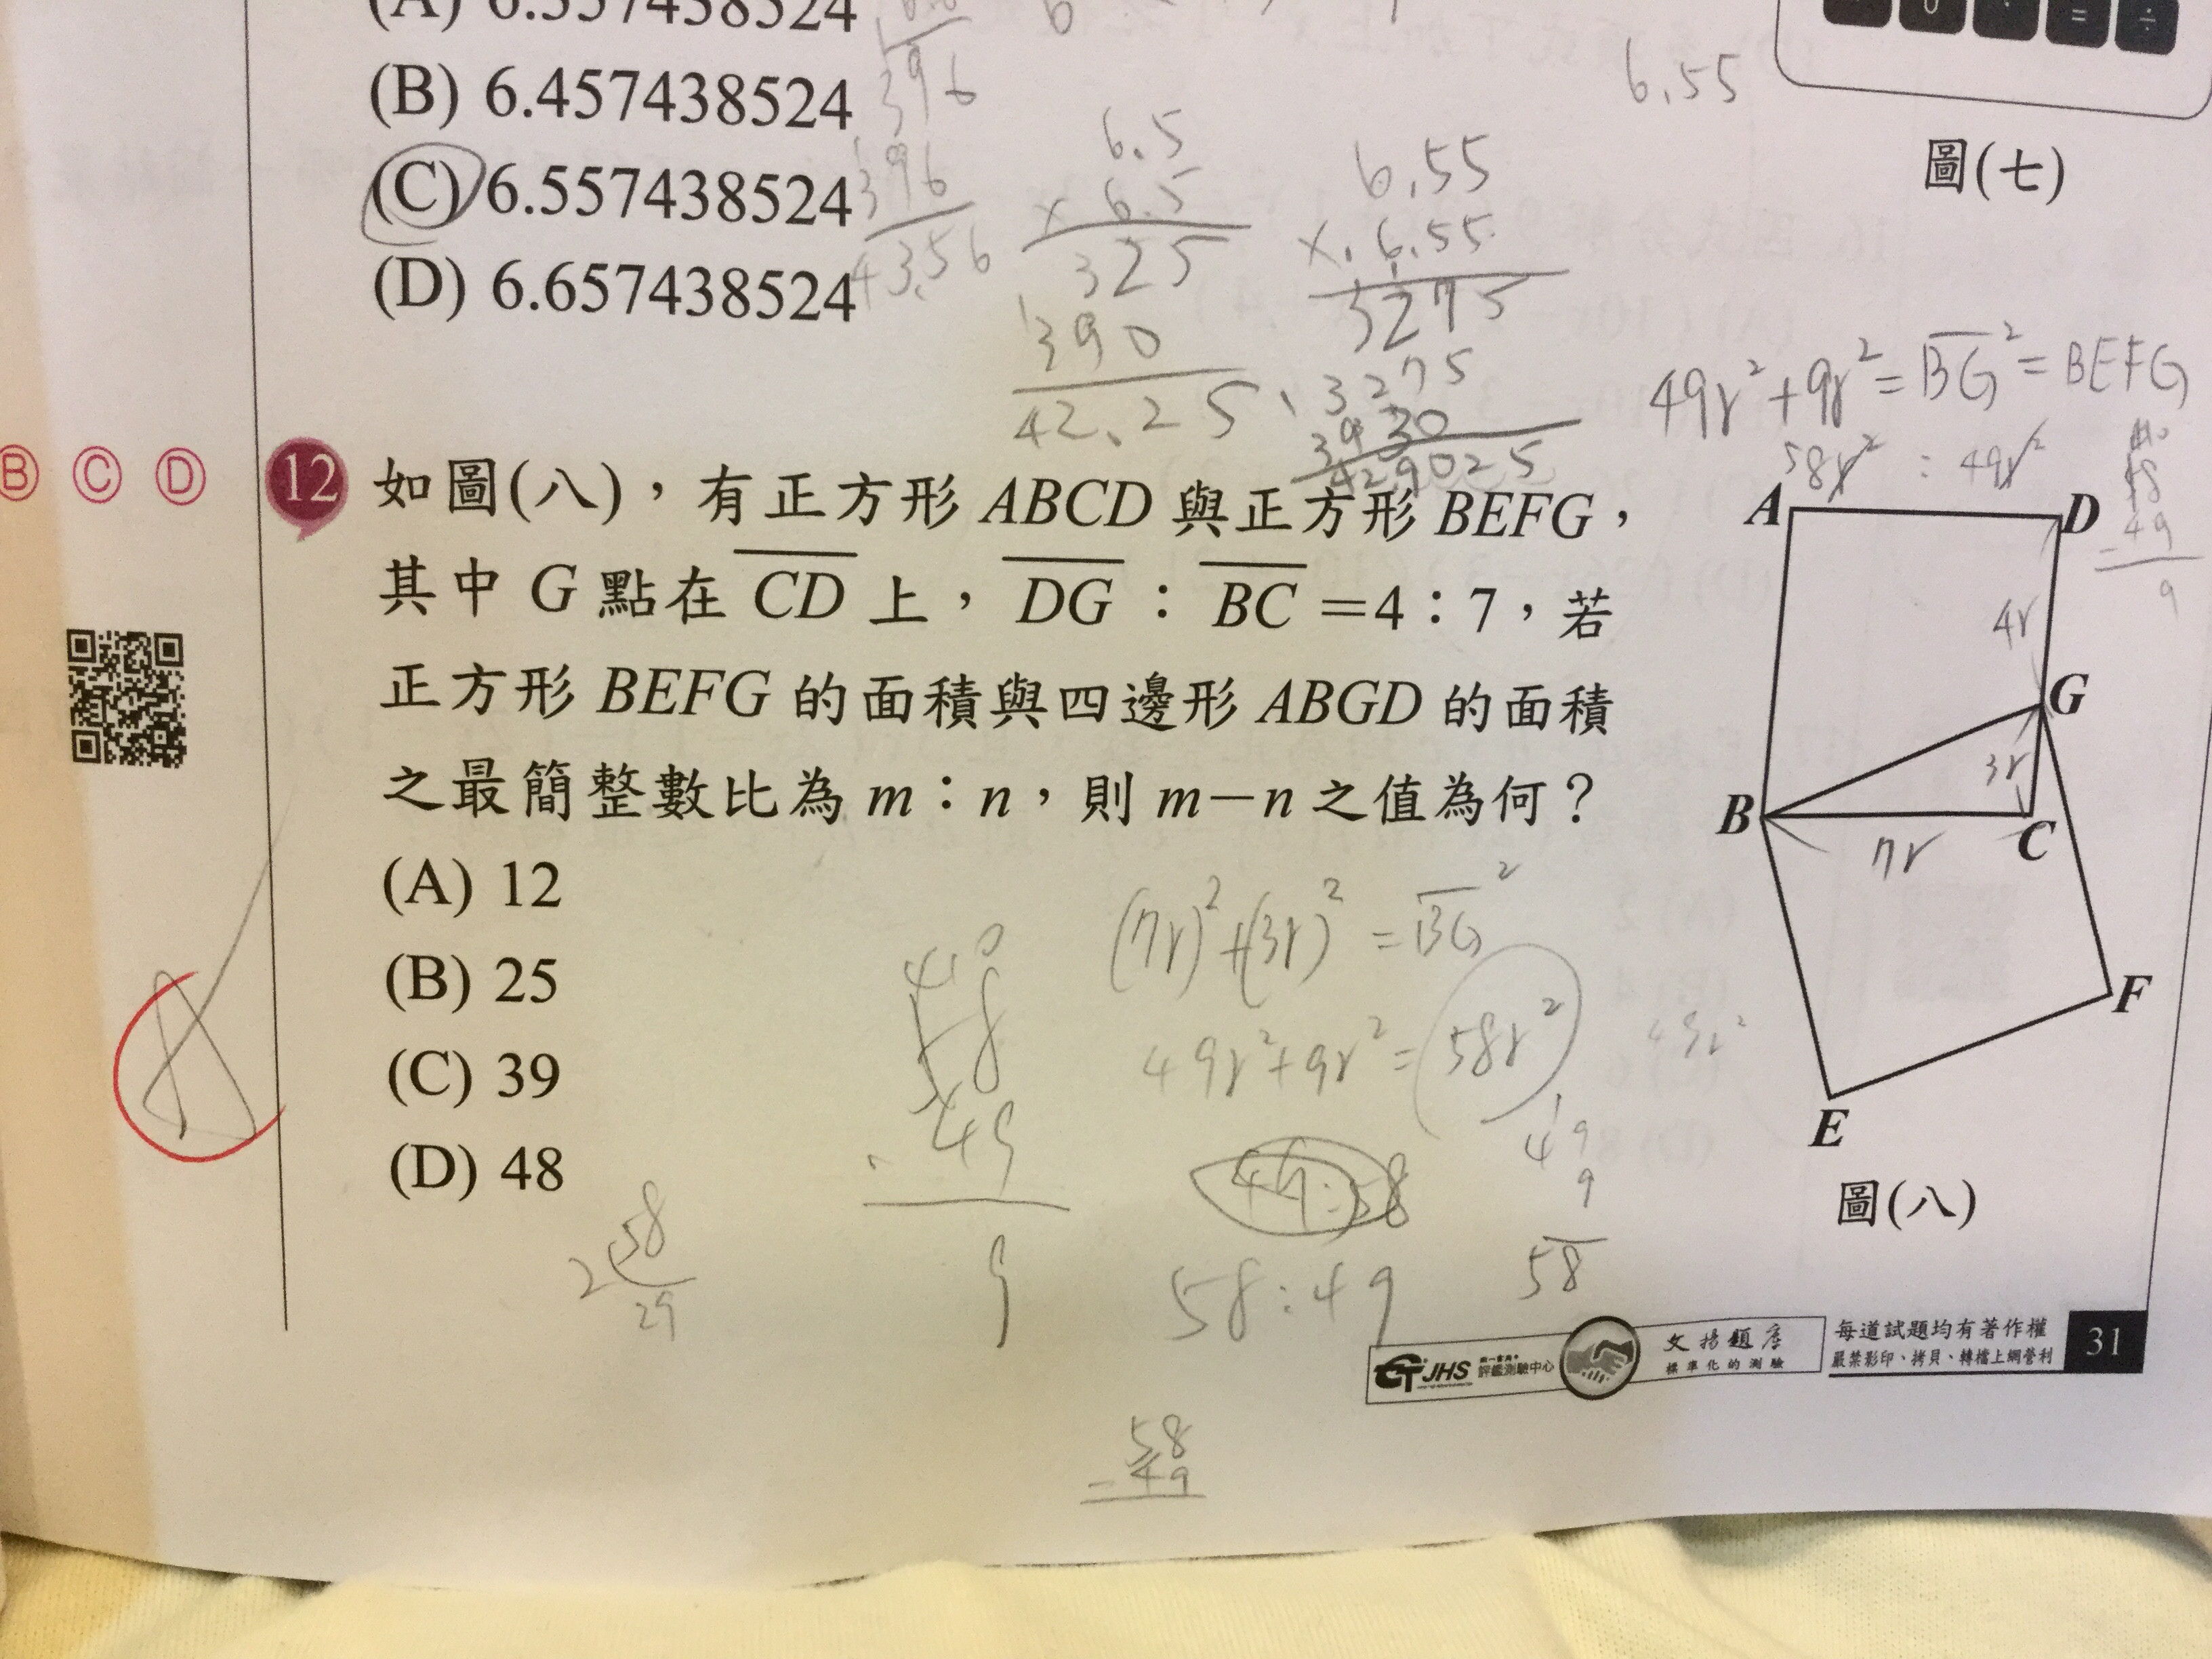 (B) 6.457438524
(C) 6.557438524
(D) 6.657438524
396
396
43.56
6.5
× 6.5
325
390
42.25
6.55
× 6.55
3275
3275
3930
429025
6.55
圖(七)
49r²+9r²=BG²=BEFG
58r² : 49r²
49
9
B C D
12 如圖(八)，有正方形 ABCD 與正方形 BEFG，
其中 G 點在 CD 上， DG ： BC =4：7，若
正方形 BEFG 的面積與四邊形 ABGD 的面積
之最簡整數比為 m：n，則 m－n 之值為何？
(A) 12
(B) 25
(C) 39
(D) 48
A
D
4r
G
3r
B
C
7r
F
E
圖(八)
(7r)²+(3r)²=BG²
49r²+9r²=58r²
49r²
58
49
9
49:58
58:49
49
9
58
2 58
29
58
- 49
JHS 評鑑測驗中心
文揚題庫
標準化的測驗
每道試題均有著作權
嚴禁影印、拷貝、轉檔上網營利
31